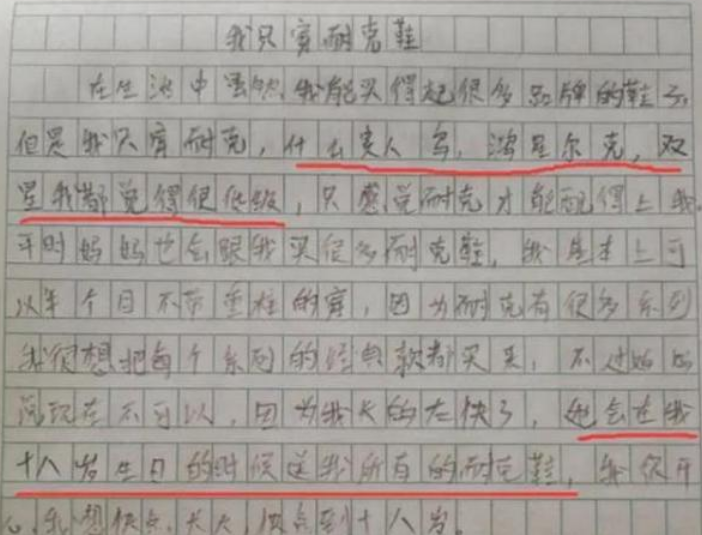 我只穿耐克鞋
在生活中虽然我能买得起很多品牌的鞋子,
但是我只穿耐克,什么贵人鸟,鸿星尔克,双
星我都觉得很低级,只感觉耐克才能配得上我.
平时妈妈也会跟我买很多耐克鞋,我基本上可
以半个月不带重柱的穿,因为耐克有很多系列
我很想把每个系列的经典款都买来,不过妈妈
说现在不可以,因为我长的太快了,她会在我
十八岁生日的时候送我所有的耐克鞋,我很开
心.我想快点长大,快点到十八岁。